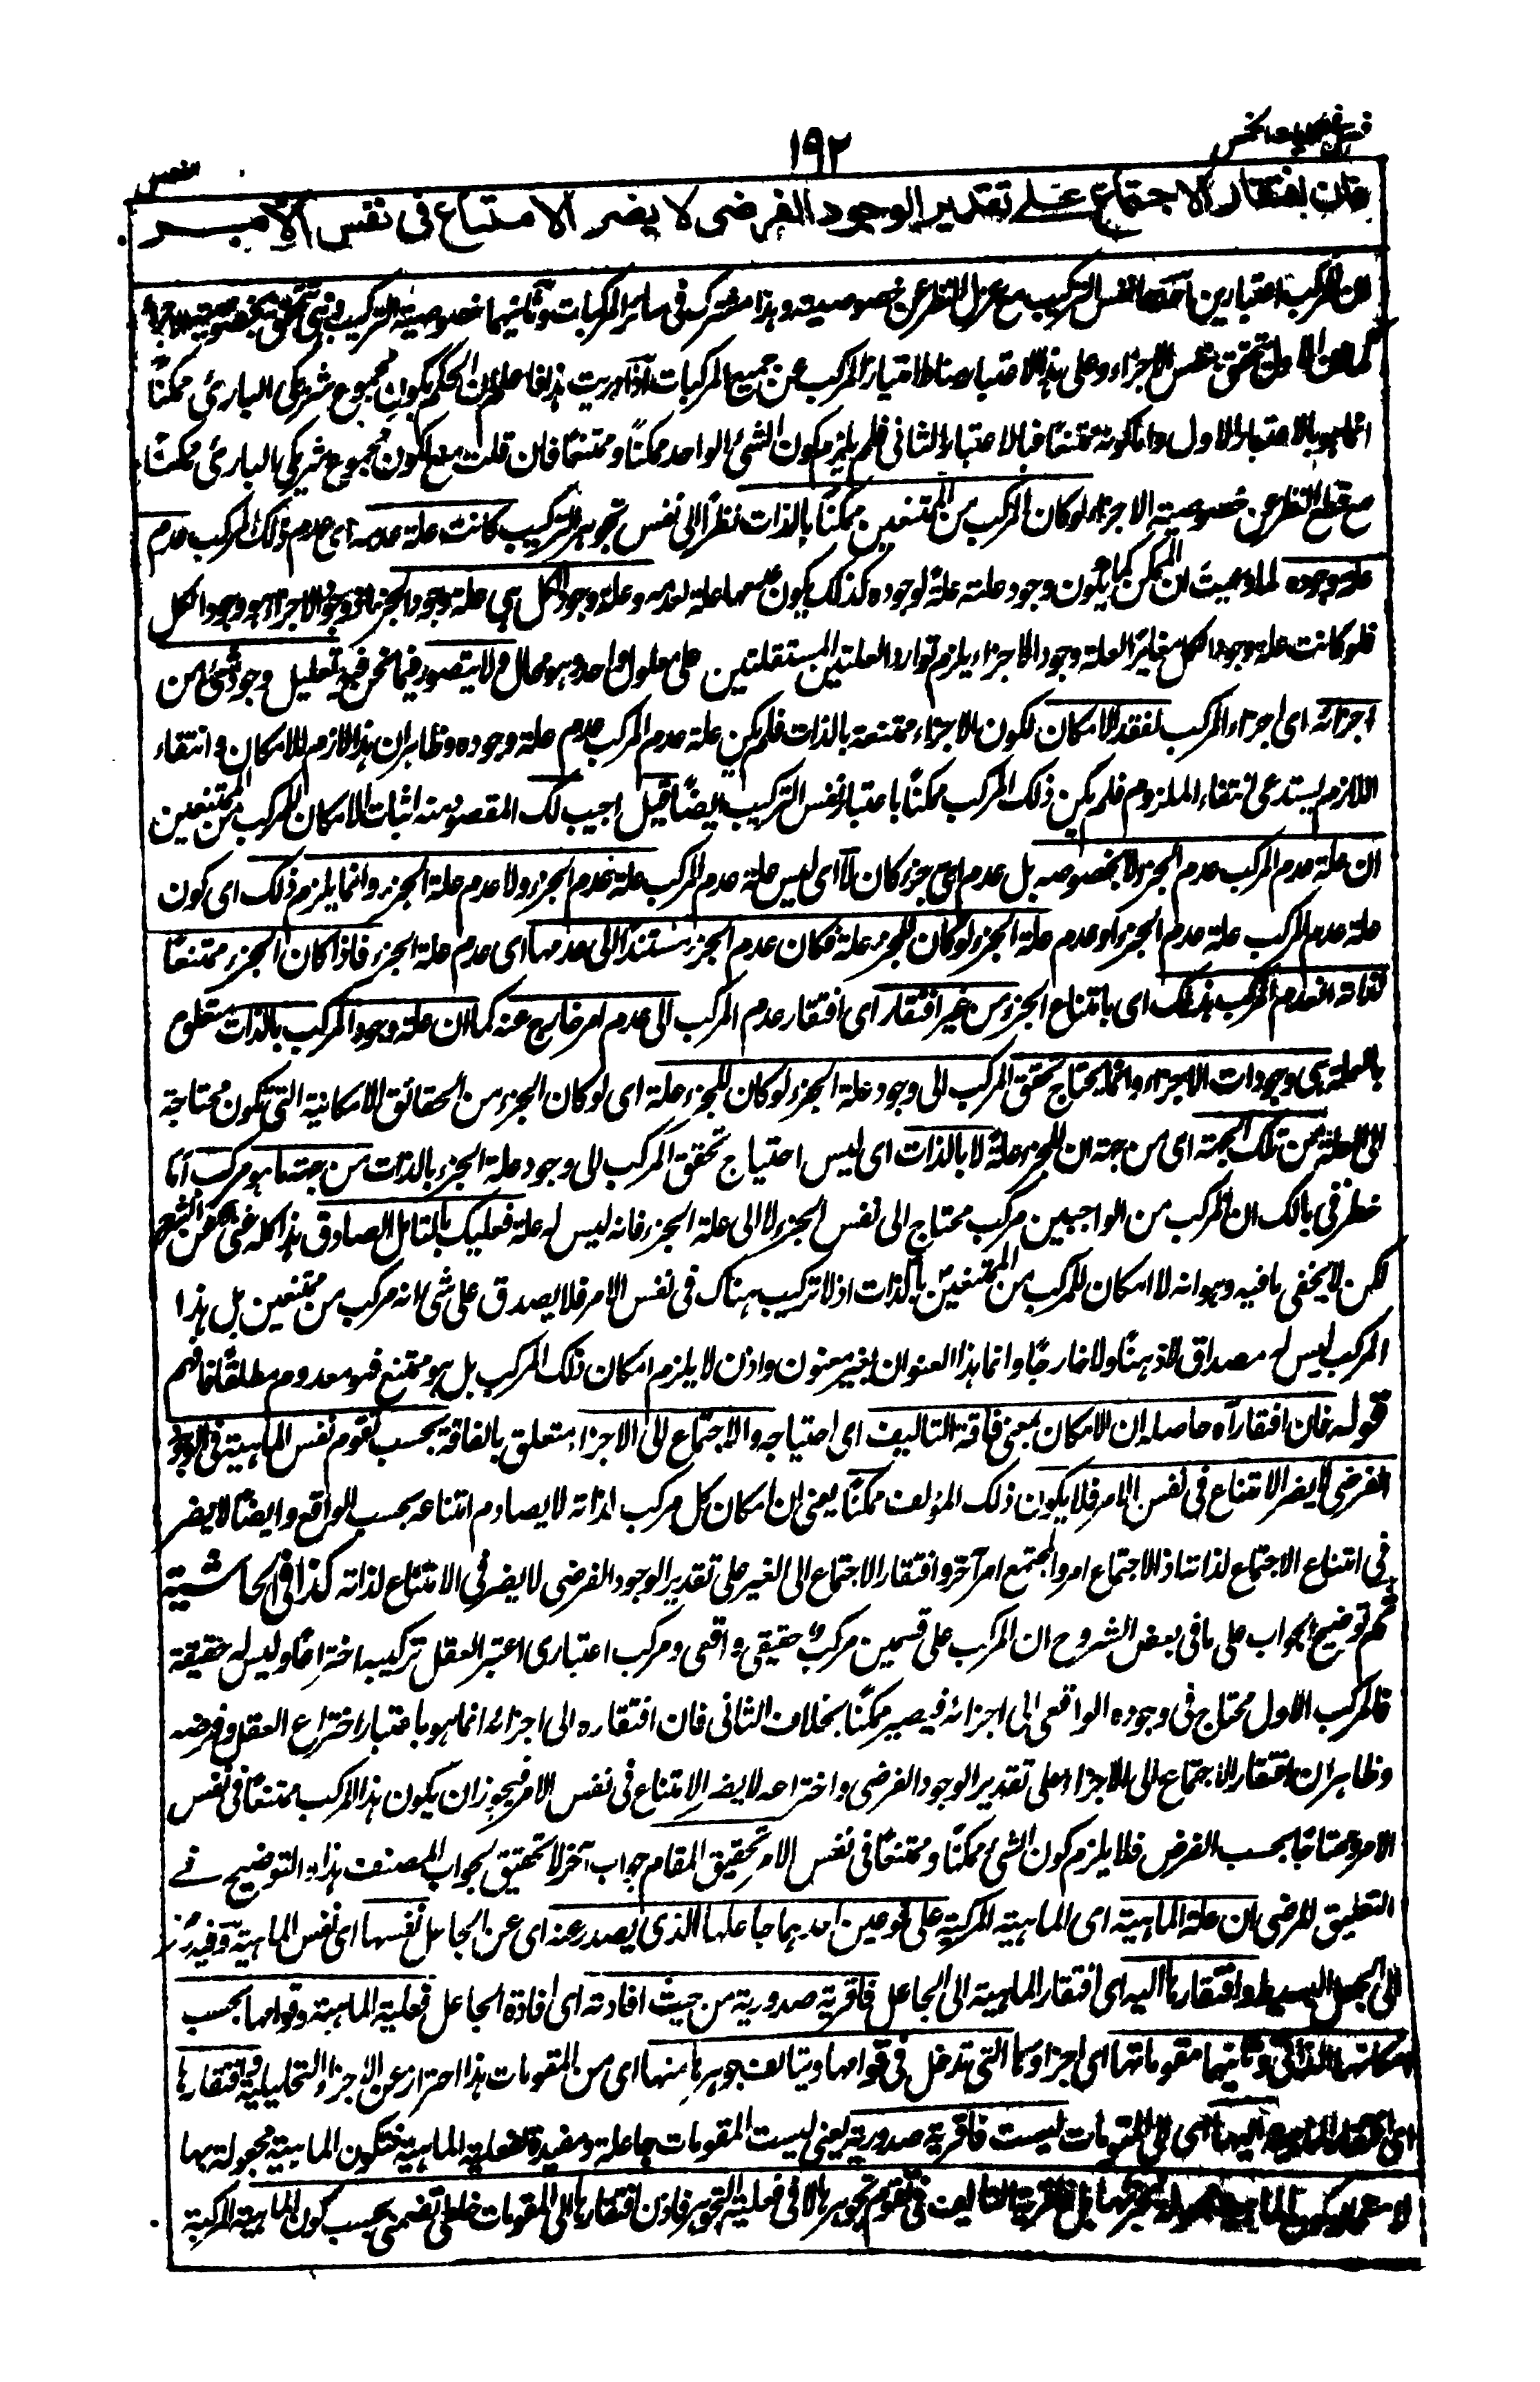 ١٩٢
فان افتقار الاجتماع على تقدير الوجود الفرضى لا يضر الامتناع فى نفس الامر
ان للمركب اعتبارين احدهما نفس التركيب مع عزل النظر عن خصوصيته وهذا مشترك فى سائر المركبات وثانيهما خصوصية التركيب
الاجزاء وعلى هذا الاعتبار مناط امتياز المركب عن جميع المركبات اذا دريت هذا فاعلم ان الحكم بكون مجموع شريكى البارئ ممكنًا
انما هو بالاعتبار الاول واما كونه ممتنعًا فبالاعتبار الثانى فلم يلزم كون الشئ الواحد ممكنًا وممتنعًا فان قلت مجموع شريكى البارئ ممكنًا
مع قطع النظر عن خصوصية الاجزاء لو كان المركب من الممتنعين ممكنًا بالذات نظرًا الى نفس تجوهر التركيب كانت علة عدمه اى عدم ذلك المركب عدم
علة وجوده لما دريت ان الممكن كما يكون وجود علته علةً لوجوده كذلك يكون عدمها علة لعدمه وعلة وجود الكل هى علة وجود الجزء فان وجود الاجزاء هو وجود الكل
فلو كانت علة وجود الكل مغايرًا لعلة وجود الاجزاء يلزم توارد العلتين المستقلتين على معلول واحد وهو محال ولا يتصور فيما نحن فيه تعليل وجود شئ من
اجزائه اى اجزاء المركب لفقد الامكان لكون الاجزاء ممتنعة بالذات فلم يكن علة عدم المركب عدم علة وجوده وظاهر ان هذا لازم للامكان وانتفاء
اللازم يستدعى انتفاء الملزوم فلم يكن ذلك المركب ممكنًا باعتبار نفس التركيب ايضًا قيل اجيب لك المقصود منه اثبات الامكان للمركب من الممتنعين
ان علة عدم المركب عدم الجزء لا بخصوصه بل عدم اى جزء كان لا اى ليس علة عدم المركب علة عدم الجزء ولا عدم علة الجزء وانما يلزم ذلك اى كون
علة عدم المركب علة عدم الجزء او عدم علة الجزء لو كان للجزء علة فكان عدم الجزء مستندًا الى عدمها اى عدم علة الجزء فاذا كان الجزء ممتنعًا
لذاته انعدم المركب بذلك اى بامتناع الجزء من غير افتقار اى افتقار عدم المركب الى عدم امر خارج عنه كما ان علة وجود المركب بالذات
وجودات الاجزاء وانما يحتاج تحقق المركب الى وجود علة الجزء لو كان للجزء علة اى لو كان الجزء من الحقائق الامكانية التى تكون محتاجة
الى العلة من تلك الجهة اى من جهة ان للجزء علةً لا بالذات اى ليس احتياج تحقق المركب الى وجود علة الجزء بالذات من جهة ما هو مركب اما
خطر فى بالك ان المركب من الواجبين مركب محتاج الى نفس الجزء لا الى علة الجزء فانه ليس له علة فعليك بالتامل الصادق هذا كله
لكن لا يخفى ما فيه وهو انه لا امكان للمركب من الممتنعين بالذات اذ لا تركيب هناك فى نفس الامر فلا يصدق على شئ انه مركب من ممتنعين بل هذا
المركب ليس له مصداق لا ذهنًا ولا خارجًا وانما هذا العنوان بغير معنون واذن لا يلزم امكان ذلك المركب بل هو ممتنع فهو معدوم مطلقًا فافهم
قوله فان افتقار اه حاصله ان الامكان بمعنى فاقة التاليف اى احتياجه والاجتماع الى الاجزاء متعلق بالفاقة بحسب تقوم نفس الماهية فى الوجود
الفرضى لا يضر الامتناع فى نفس الامر فلا يكون ذلك المؤلف ممكنًا يعنى ان امكان كل مركب لذاته لا يصادم امتناعه بحسب الواقع وايضًا لا يضر
فى امتناع الاجتماع لذاته اذ الاجتماع امر والمجتمع امر آخر وافتقار الاجتماع الى الغير على تقدير الوجود الفرضى لا يضر فى الامتناع لذاته كذا فى الحاشية
ثم توضيح الجواب على ما فى بعض الشروح ان المركب على قسمين مركب حقيقى واقعى ومركب اعتبارى اعتبر العقل تركيبه اختراعًا وليس له حقيقة
فالمركب الاول محتاج فى وجوده الواقعى الى اجزائه فيصير ممكنًا بخلاف الثانى فان افتقاره الى اجزائه انما هو باعتبار اختراع العقل وفرضه
وظاهر ان افتقار الاجتماع الى الاجزاء على تقدير الوجود الفرضى واختراعه لا يضر الامتناع فى نفس الامر فيجوز ان يكون هذا المركب ممتنعًا فى نفس
الامر ومحتاجًا بحسب الفرض فلا يلزم كون الشئ ممكنًا وممتنعًا فى نفس الامر تحقيق المقام جواب آخر لا تحقيق لجواب المصنف هذا التوضيح فى
التعليق المرضى ان علة الماهية اى الماهية المركبة على نوعين احدهما جاعلها الذى يصدر عنه اى عن الجاعل نفسها اى نفس الماهية وفيه رمز
الى الجعل البسيط وافتقارها اليه اى افتقار الماهية الى الجاعل فاقرية صدورية من حيث افادته اى افادة الجاعل فعلية الماهية وقوامها بحسب
امكانها الذاتى وثانيهما مقوماتها اى اجزاؤها التى تدخل فى قوامها ويتالف جوهرها منها اى من المقومات هذا احتراز عن الاجزاء التحليلية وافتقارها
اى افتقار الماهية اليها اى الى المقومات ليست فاقرية صدورية يعنى ليست المقومات جاعلة ومفيدة لفعلية الماهية فتكون الماهية مجعولة بها
فى تقوم تجوهرها لا فى فعلية التجوهر فاذن افتقارها الى المقومات بحسب كون الماهية المركبة